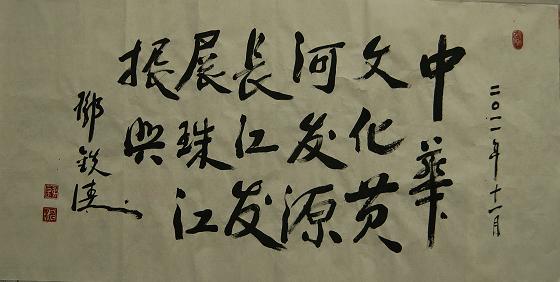 二〇一一年十一月
中華
文化黄
河发源
長江发
展珠江
振興
鄧鉄涛